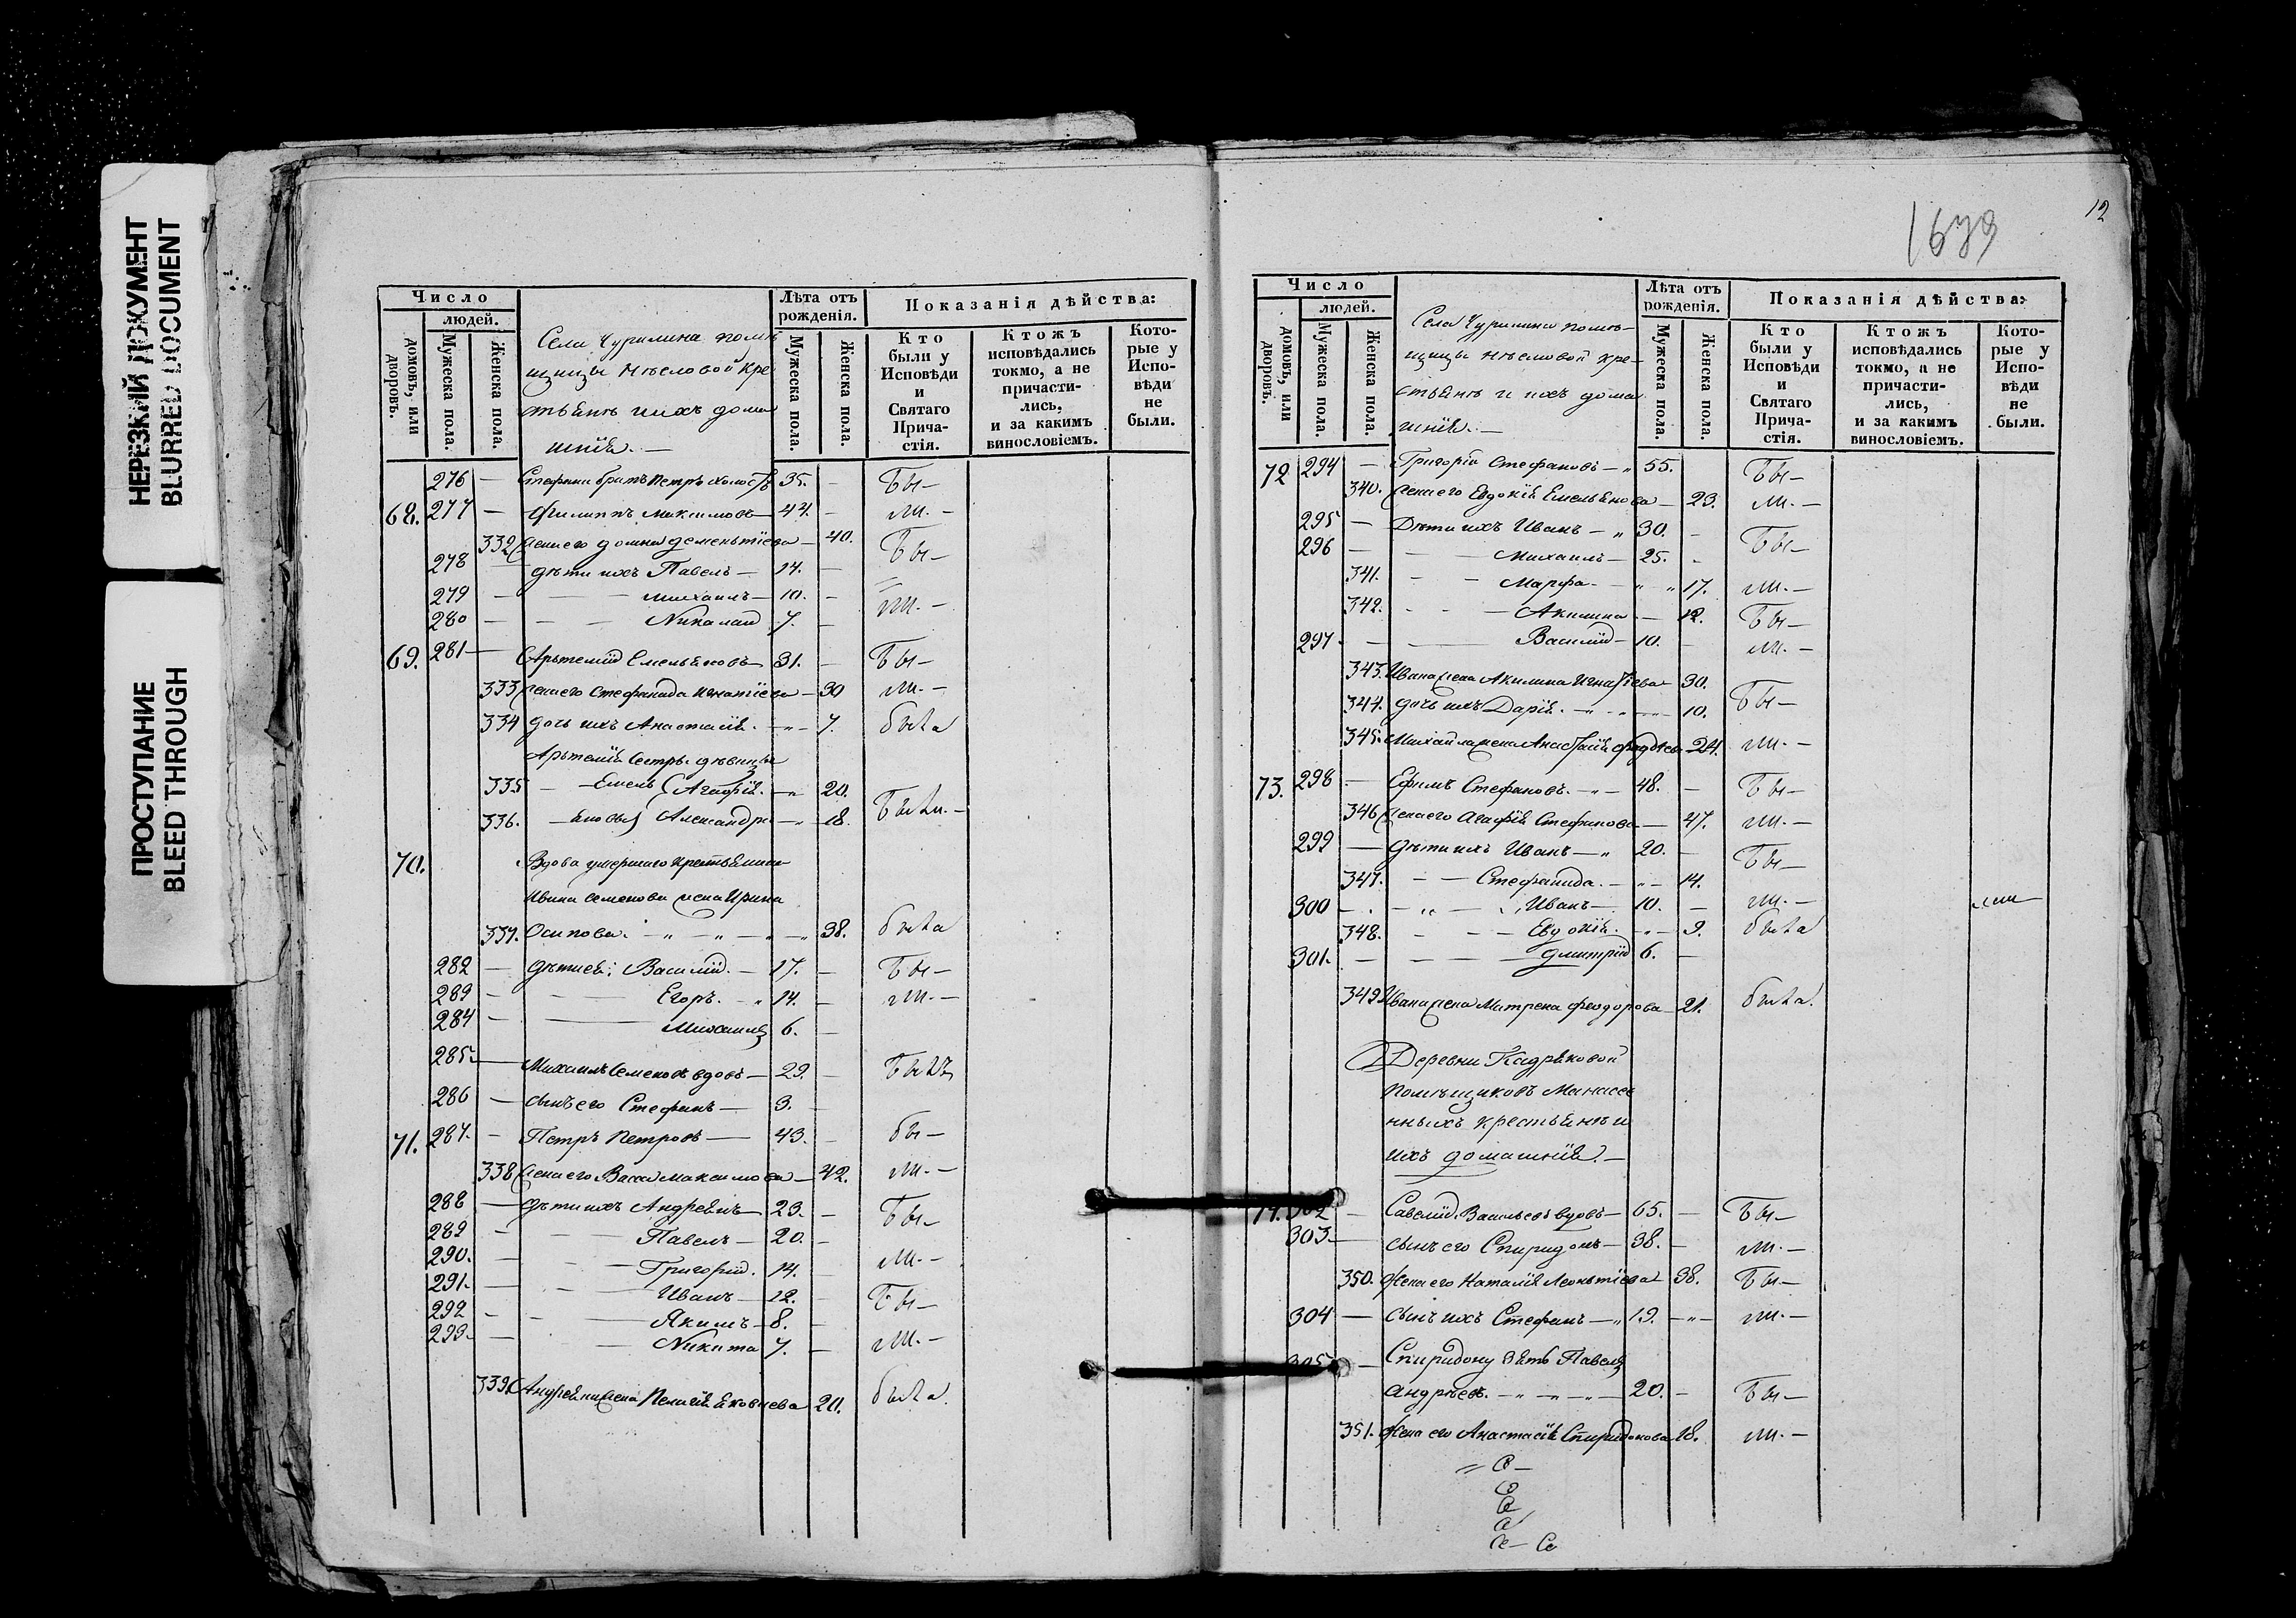 НЕРЕЗКИЙ ДОКУМЕНТ
BLURRED DOCUMENT
ПРОСТУПАНИЕ
BLEED THROUGH
Число
людей.
домовъ, или дворовъ.
Мужеска пола.
Женска пола.
Села Чурилина помѣ
щицы Нѣеловой кре
стьянъ и ихъ дома
шнія. —
Лѣта отъ рожденія.
Мужеска пола.
Женска пола.
Показанія дѣйства:
Кто были у Исповѣди и Святаго Прича-стія.
Ктожъ исповѣдались токмо, а не причасти-лись, и за какимъ винословіемъ.
Кото-рые у Испо-вѣди не были.
276 — Стефана братъ Петръ холостъ 35. — Бы —
68. 277 — Филиппъ Максимовъ — 44. — ли. —
332 жена его Домна Дементіева — 40.
278 — дѣти ихъ Павелъ — 14. — Бы —
279 — — — Михаилъ — 10. —
280 — — — Николай 7. — ли. —
69. 281 — Артемій Емельяновъ — 31. — Бы —
333 жена его Стефанида Игнатіева — 30 ли. —
334 дочь ихъ Анастасія. — „ — 7. была
Артемія сестры дѣвицы
335 — Емель Агафія. — „ 20.
336. — яновы Александра — „ 18. Были. —
70. Вдова умершаго крестьянина
Ивана Семенова жена Ирина
337. Осипова. — „ — „ — „ — „ 38. была
282 — дѣти ея: Василій. — 17. — Бы —
283 — — Егоръ. — „ 14. — ли. —
284 — — Михаилъ 6. —
285. — Михаилъ Семеновъ вдовъ — 29. — Былъ
286 — сынъ его Стефанъ — 3. —
71. 287. — Петръ Петровъ — 43. — бы —
338 жена его Васса Максимова — 42. ли. —
288 — дѣти ихъ Андреянъ — 23. — Бы —
289 — — Павелъ — 20. —
290. — — Григорій. 14. — ли. —
291. — — Иванъ — 12. Бы —
292 — — Якимъ — 8. —
293. — — Никита 7. — ли. —
339. Андреяна жена Пелагія Яковлева 20. была.
1639
12
Число
людей.
домовъ, или дворовъ.
Мужеска пола.
Женска пола.
Села Чурилина помѣ-
щицы Нѣеловой кре-
стьянъ и ихъ дома
шнія. —
Лѣта отъ рожденія.
Мужеска пола.
Женска пола.
Показанія дѣйства:
Кто были у Исповѣди и Святаго Прича-стія.
Ктожъ исповѣдались токмо, а не причасти-лись, и за какимъ винословіемъ.
Кото-рые у Испо-вѣди не были.
72 294 — Григорій Стефановъ — „ 55. Бы —
340. жена его Евдокія Емельянова — 23. ли. —
295 — Дѣти ихъ Иванъ — „ 30. —
296 — — — Михаилъ — 25. — Бы —
341. — — Марфа. — „ „ 17. ли. —
342. — — Акилина — 12. Бы —
297. — — Василій — 10. — ли. —
343. Ивана жена Акилина Игнатіева 30.
344. дочь ихъ Дарія. — „ — „ — 10. Бы —
345. Михаила жена Анастасія 24. ли. —
73. 298 — Ефимъ Стефановъ. — „ — 48. — Бы —
346 жена его Агафія Стефанова — 47. ли. —
299 — дѣти ихъ Иванъ — „ 20. — Бы —
347. — — Стефанида. — „ — 14.
300 — — „ — „ Иванъ — 10. — ли. —
348. — — — Евдокія. — „ — 9. была
301. — — — — Дмитрій 6. —
349 Ивана жена Матрена Феодорова — 21. была.
Деревни Кадряковой
помѣщиковъ Манассе
иныхъ крестьянъ и
ихъ домашнія. —
74. 302 — Савелій Васильевъ вдовъ — 65. — Бы —
303 — сынъ его Спиридонъ — 38. — ли. —
350. Жена его Наталія Леонтіева 38. Бы —
304 — сынъ ихъ Стефанъ — „ 19. — „ — ли. —
305 — Спиридону зять Павелъ
Андрѣевъ. — „ — „ — „ — 20. — Бы —
351. Жена его Анастасія Спиридонова 18. ли. —